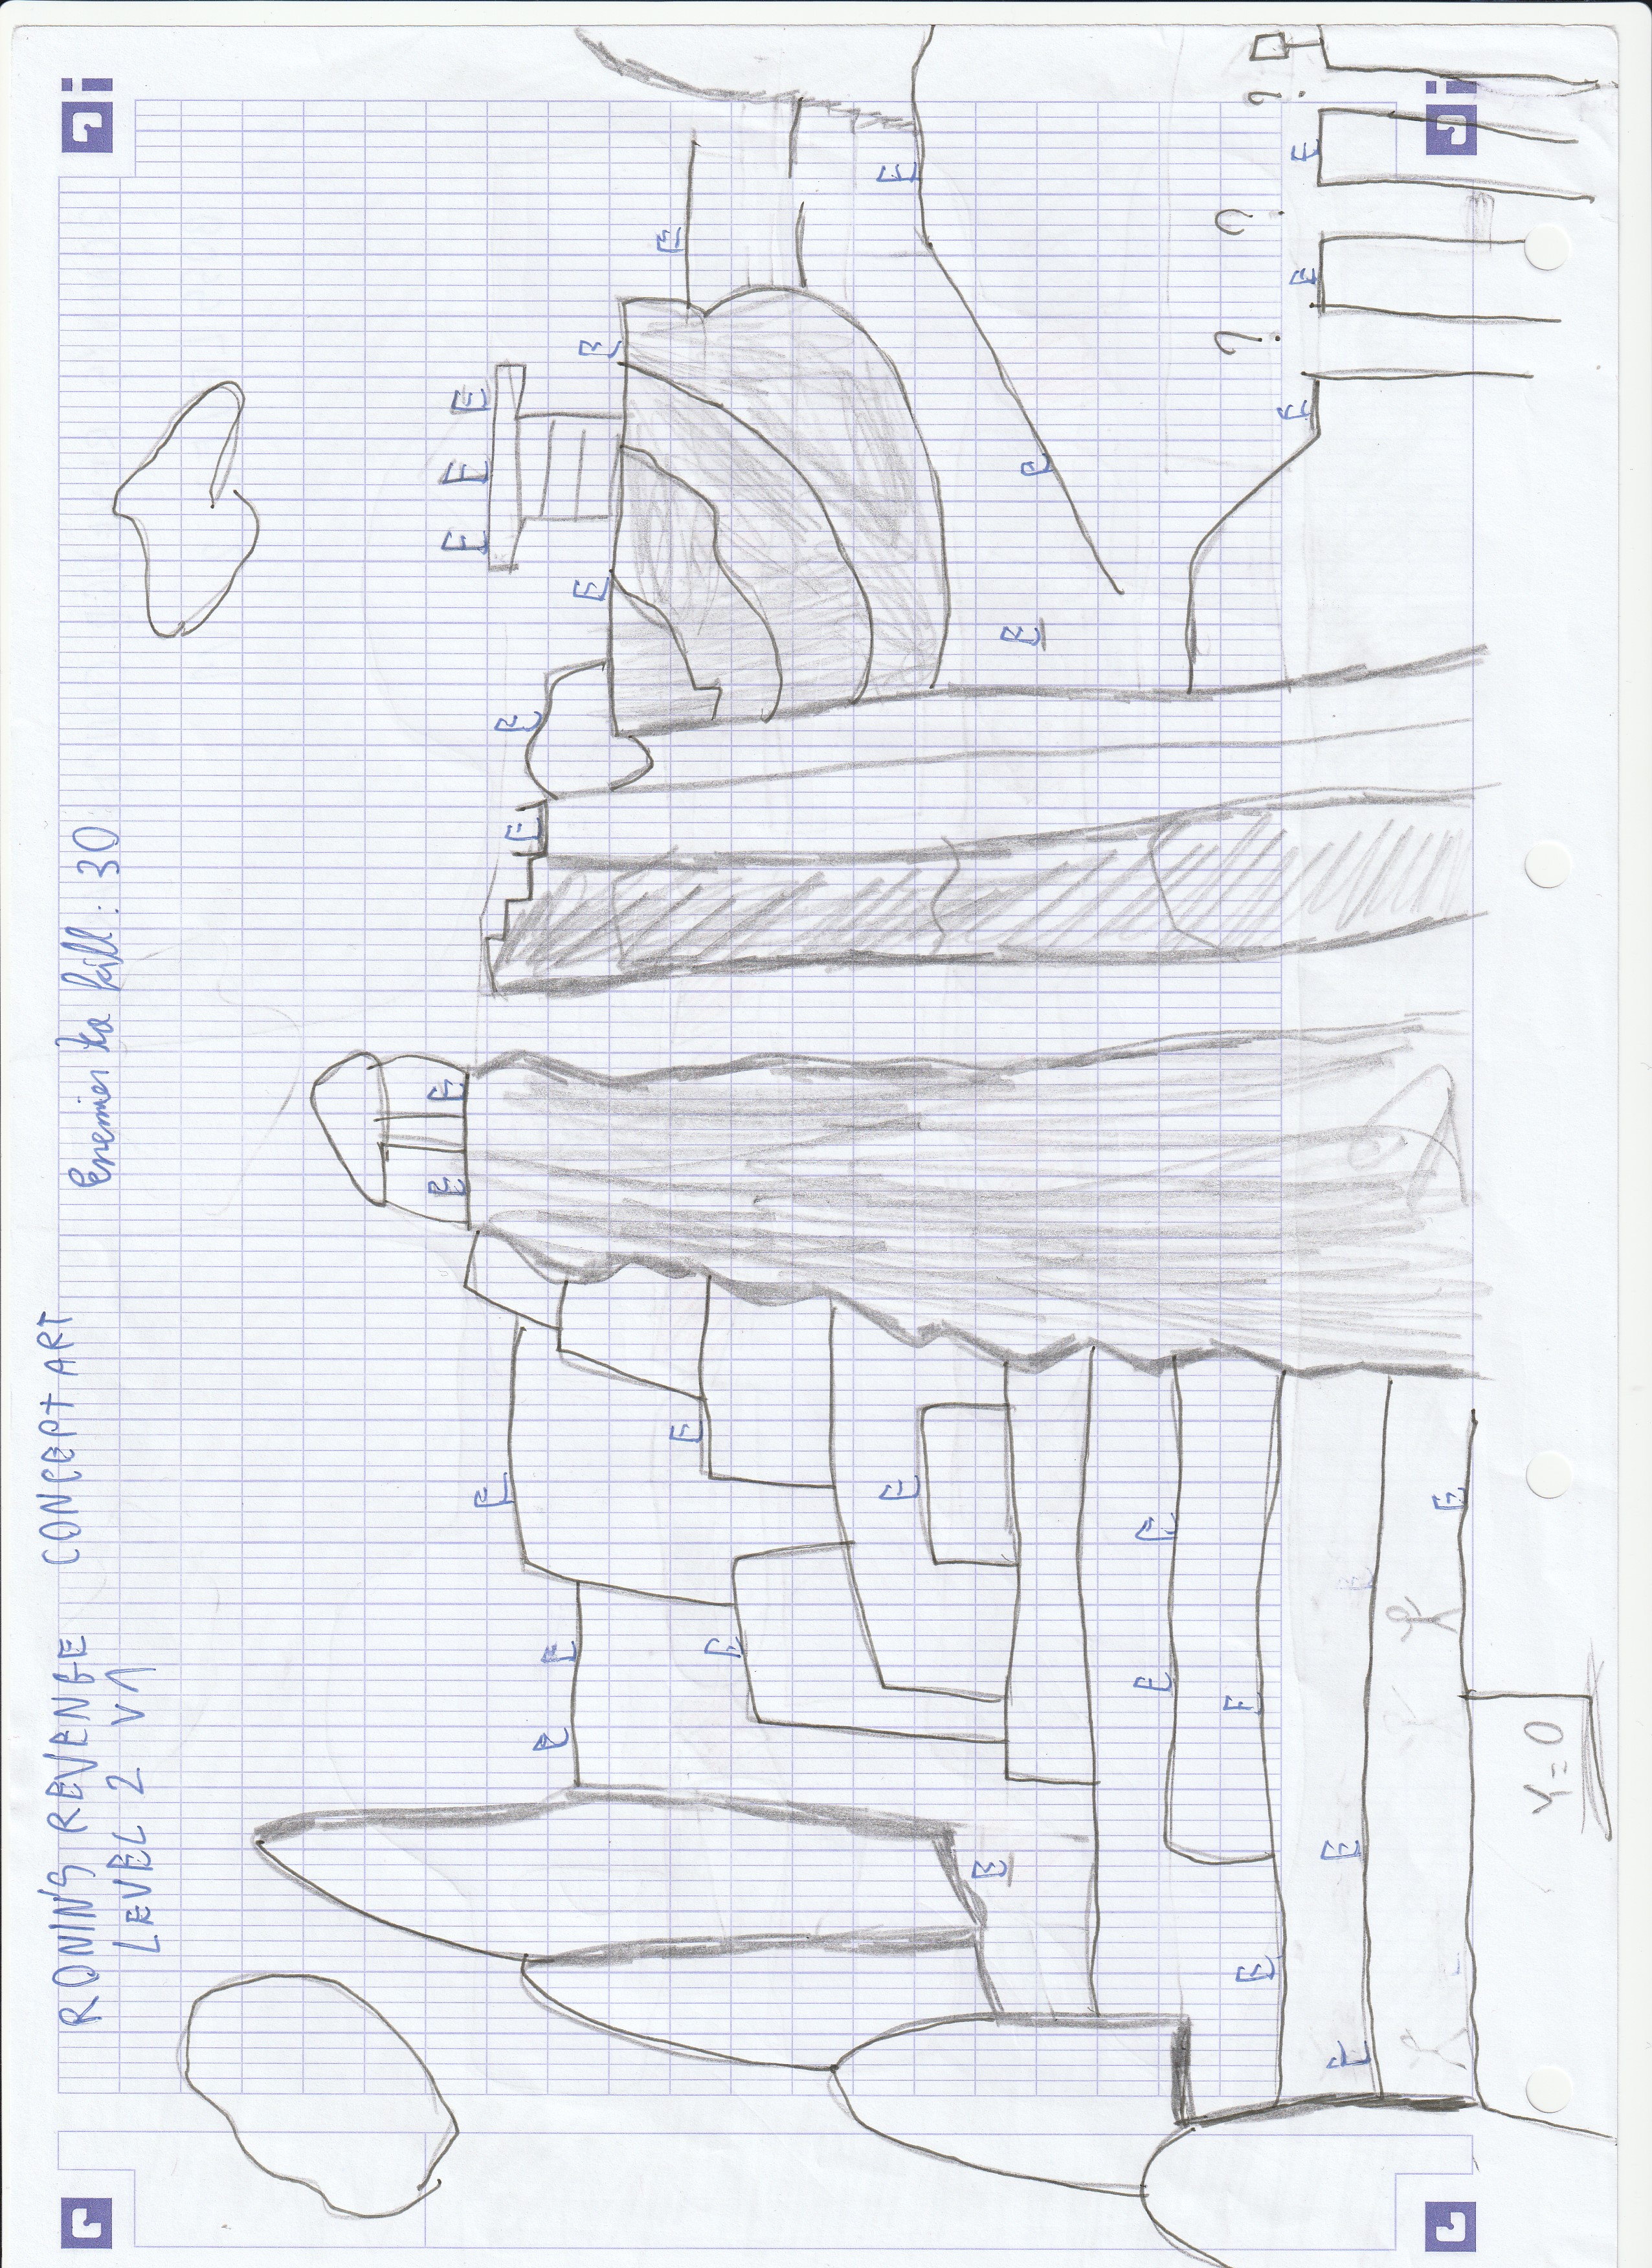 RONIN'S REVENGE CONCEPT ART
LEVEL 2 V1
Enemies to kill: 30
E E E E E
E E E E E
E E
E E E
E E
E E E
E E
? ? ?
E E
E E E
E E
E
Y=0